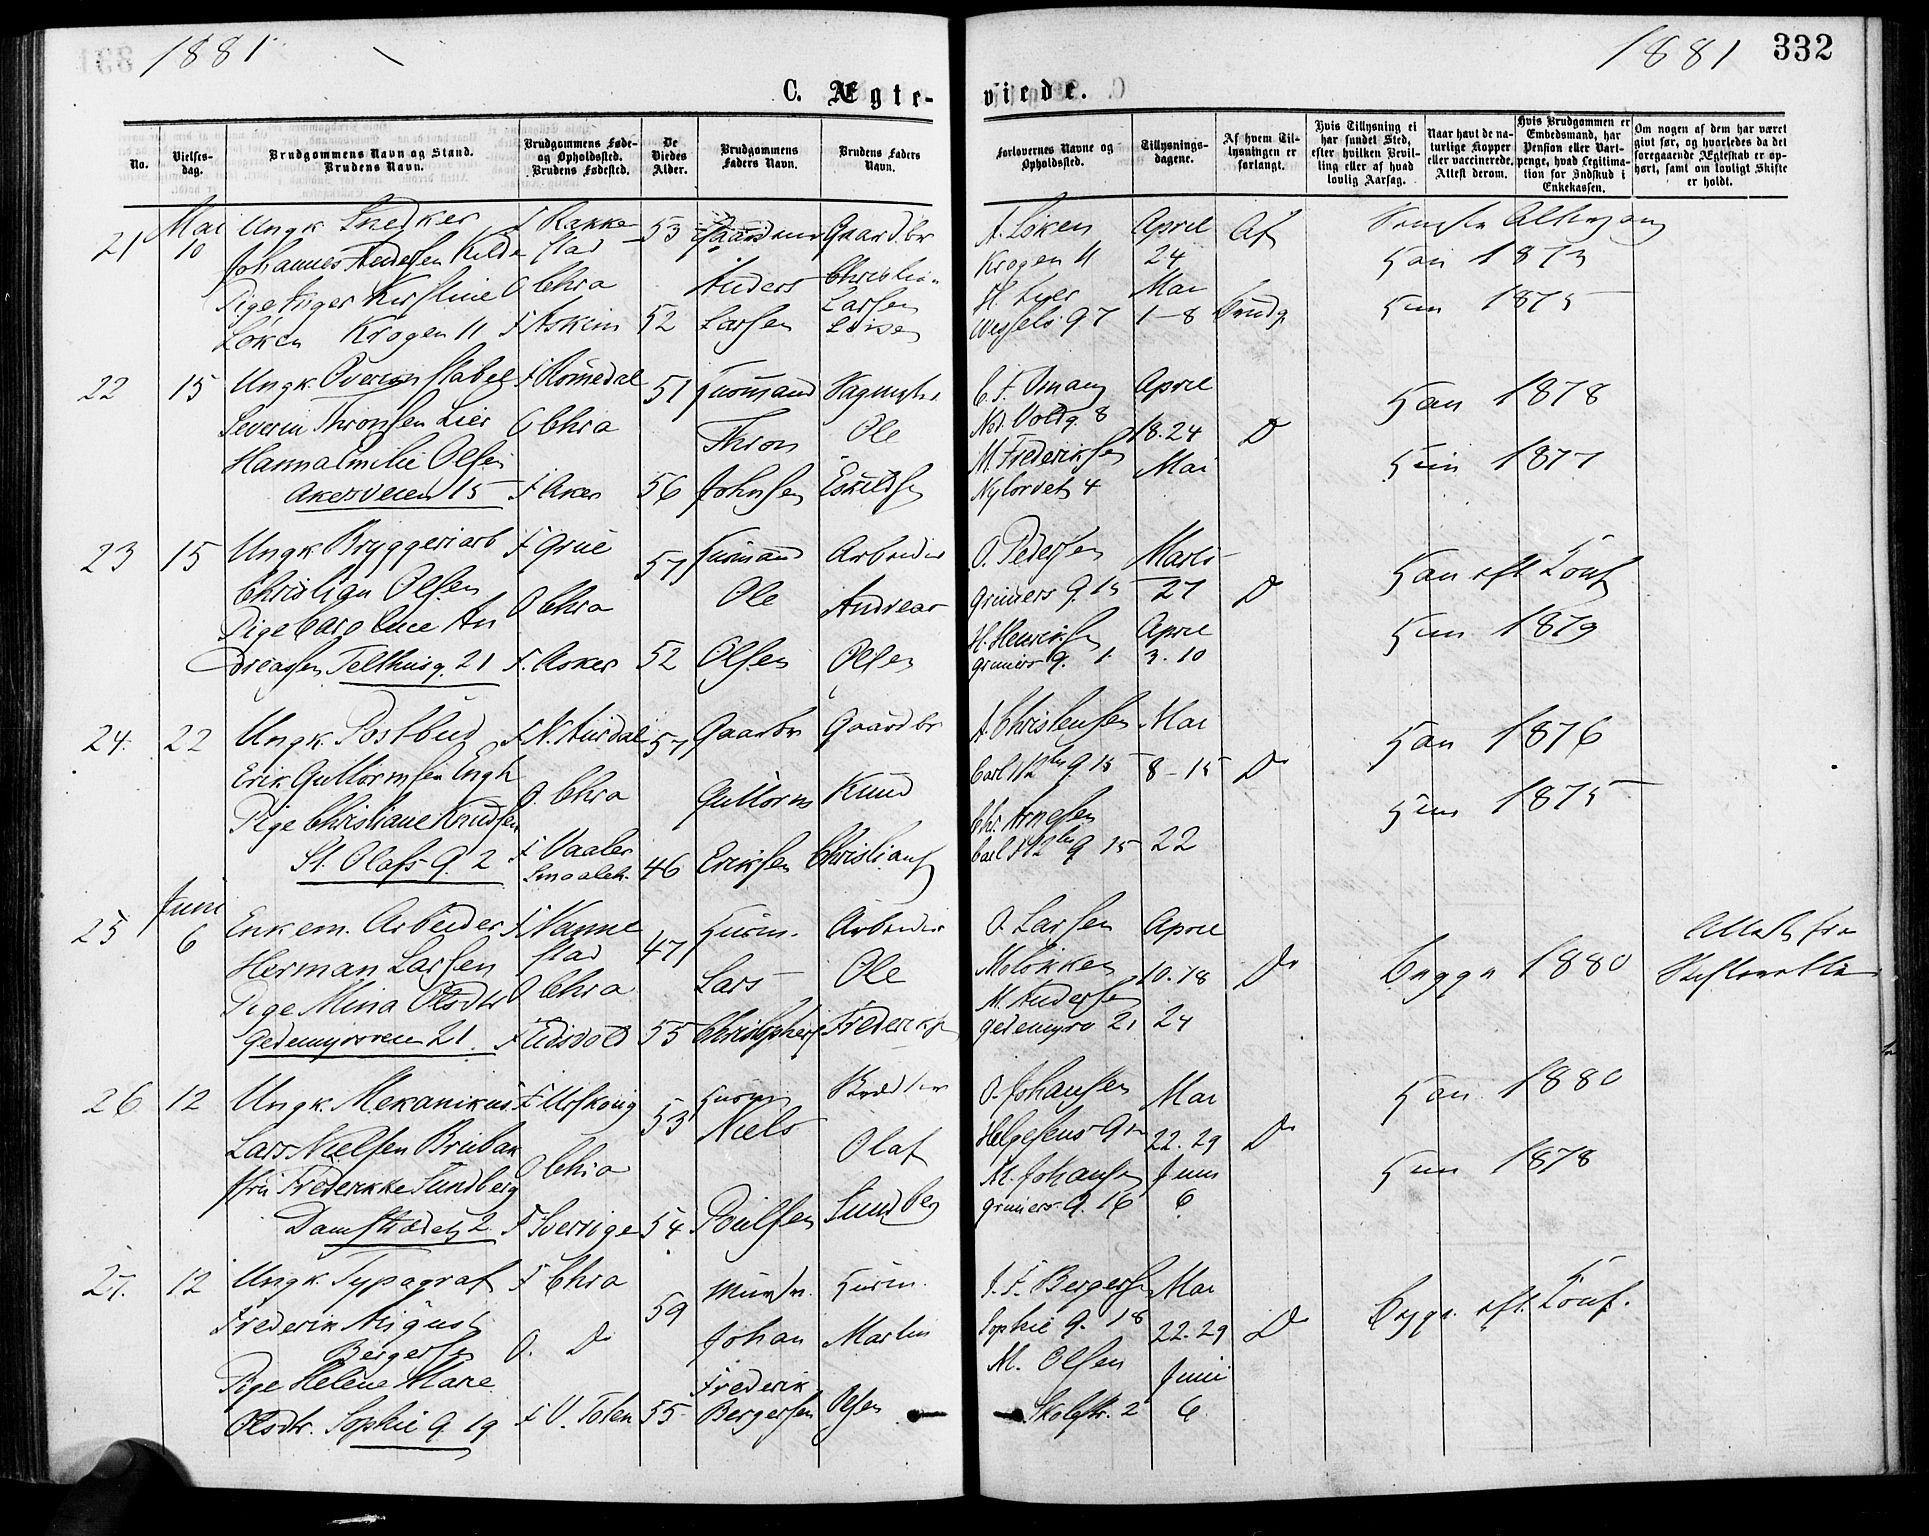 1881
1881
332
C. Ægte-
viede.
No.
Vielses-
dag.
Brudgommens Navn og Stand.
Brudens Navn.
Brudgommens Føde-
og Opholdssted.
Brudens Fødested.
De
Viedes
Alder.
Brudgommens
Faders Navn.
Brudens Faders
Navn.
Forlovernes Navne og
Opholdssted.
Tillysnings-
dagene.
Af hvem Til-
lysningen er
forlangt.
Hvis Tillysning ei
har fundet Sted,
efter hvilken Bevil-
ling eller af hvad
lovlig Aarsag.
Naar havt de na-
turlige Kopper
eller vaccinerede.
Attest derom.
Hvis Brudgommen er
Embedsmand, har
Pension eller Vart-
penge, hvad Legitima-
tion for Indskud i
Enkekassen.
Om nogen af dem har været
givt før, og hvorledes da det
foregaaende Ægteskab er op-
hørt, samt om lovligt Skifte
er holdt.
21
Mai
10
Ungk Snedker
Johannes Andersen Kilde
Pige Inger Kirstine
Løken Krogen 11
F Rakke-
stad
O Chra
F Askim
53
52
Anders
Larsen
Gaardbr
Christian
Larsen
A. Løken
Krogen 11
H. Lier
Wessels g 7
April
24
Mai
1-8
Af
Brudg
Han 1873
Hun 1875
22
15
Ungk
Severin Thronsen Lier
Hanna Emilie Olsen
Akersveien 15
F Romedal
O Chra
F Aker
51
56
Husmand
Thron
Johnsen
Ole
Eskildsen
Nd. Voldg. 8
M. Frederiksen
Nytorvet 4
April
18. 24
Mai
D
Han 1878
Hun 1877
23
15
Ungk Bryggeriarb
Christian Olsen
Pige Caroline An
dreassen Telthusg. 21
F Grue
O Chra
F. Asker
57
52
Husmand
Ole
Olsen
Arbeider
Andreas
Olsen
O. Pedersen
Grüners g. 15
H. Henriksen
Grüners g. 1
Marts
27
April
3. 10
D
Han eft Konf
Hun 1879
24.
22
Ungk. Postbud
Erik Guttormsen Engh
Pige Christiane Knudsen
St. Olafs g. 2
F N. Aurdal
O. Chra
F Vaaler
Smaalen.
57
46
Gaardbr
Guttorm
Eriksen
Gaardbr
Knud
Christians
A. Christensen
Carl XII g 15
Chr. Arnesen
Carl XII g 15
Mai
8-15
22
Do
Han 1876
Hun 1875
25
Juni
6
Enkem. Arbeider
Herman Larsen
Pige Mina Olsdtr
Gedemyrveien 21.
F Nanne
stad
O Chra
F Eidsvold
47
55
Husm.
Lars
Christophers
Arbeider
Ole
Frederiks
O. Larsen
Møløkken
M. Andersen
Gedemyrv 21
April
10. 18
24
Do
Begge 1880
Attest fra
Skifteretten
26
12
Ungk. Mekanikus
Lars Nielsen Brubak
Frederikke Sundberg
Damstrædet 2
F Ulfskoug
O Chra
F Sverige
53
54
Husm
Niels
Poulsen
Olaf
Sundberg
O. Johansen
Helgesens g
M. Johansen
Grüners g. 16
Mai
22. 29
Juni
6
Do
Han 1880
Hun 1878
27.
12
Ungk. Typograf
Frederik August
Bergersen
Pige Helene Marie
Olsdtr. Sophie g. 19
F Chra
O. Do
F V. Toten
59
55
Murer.
Johan
Frederik
Bergersen
Husm.
Martin
Olsen
J. F. Bergersen
Sophie g. 18
M. Olsen
Skolegt. 2
Mai
22. 29
Juni
6
Do
Begge eft. Konf.